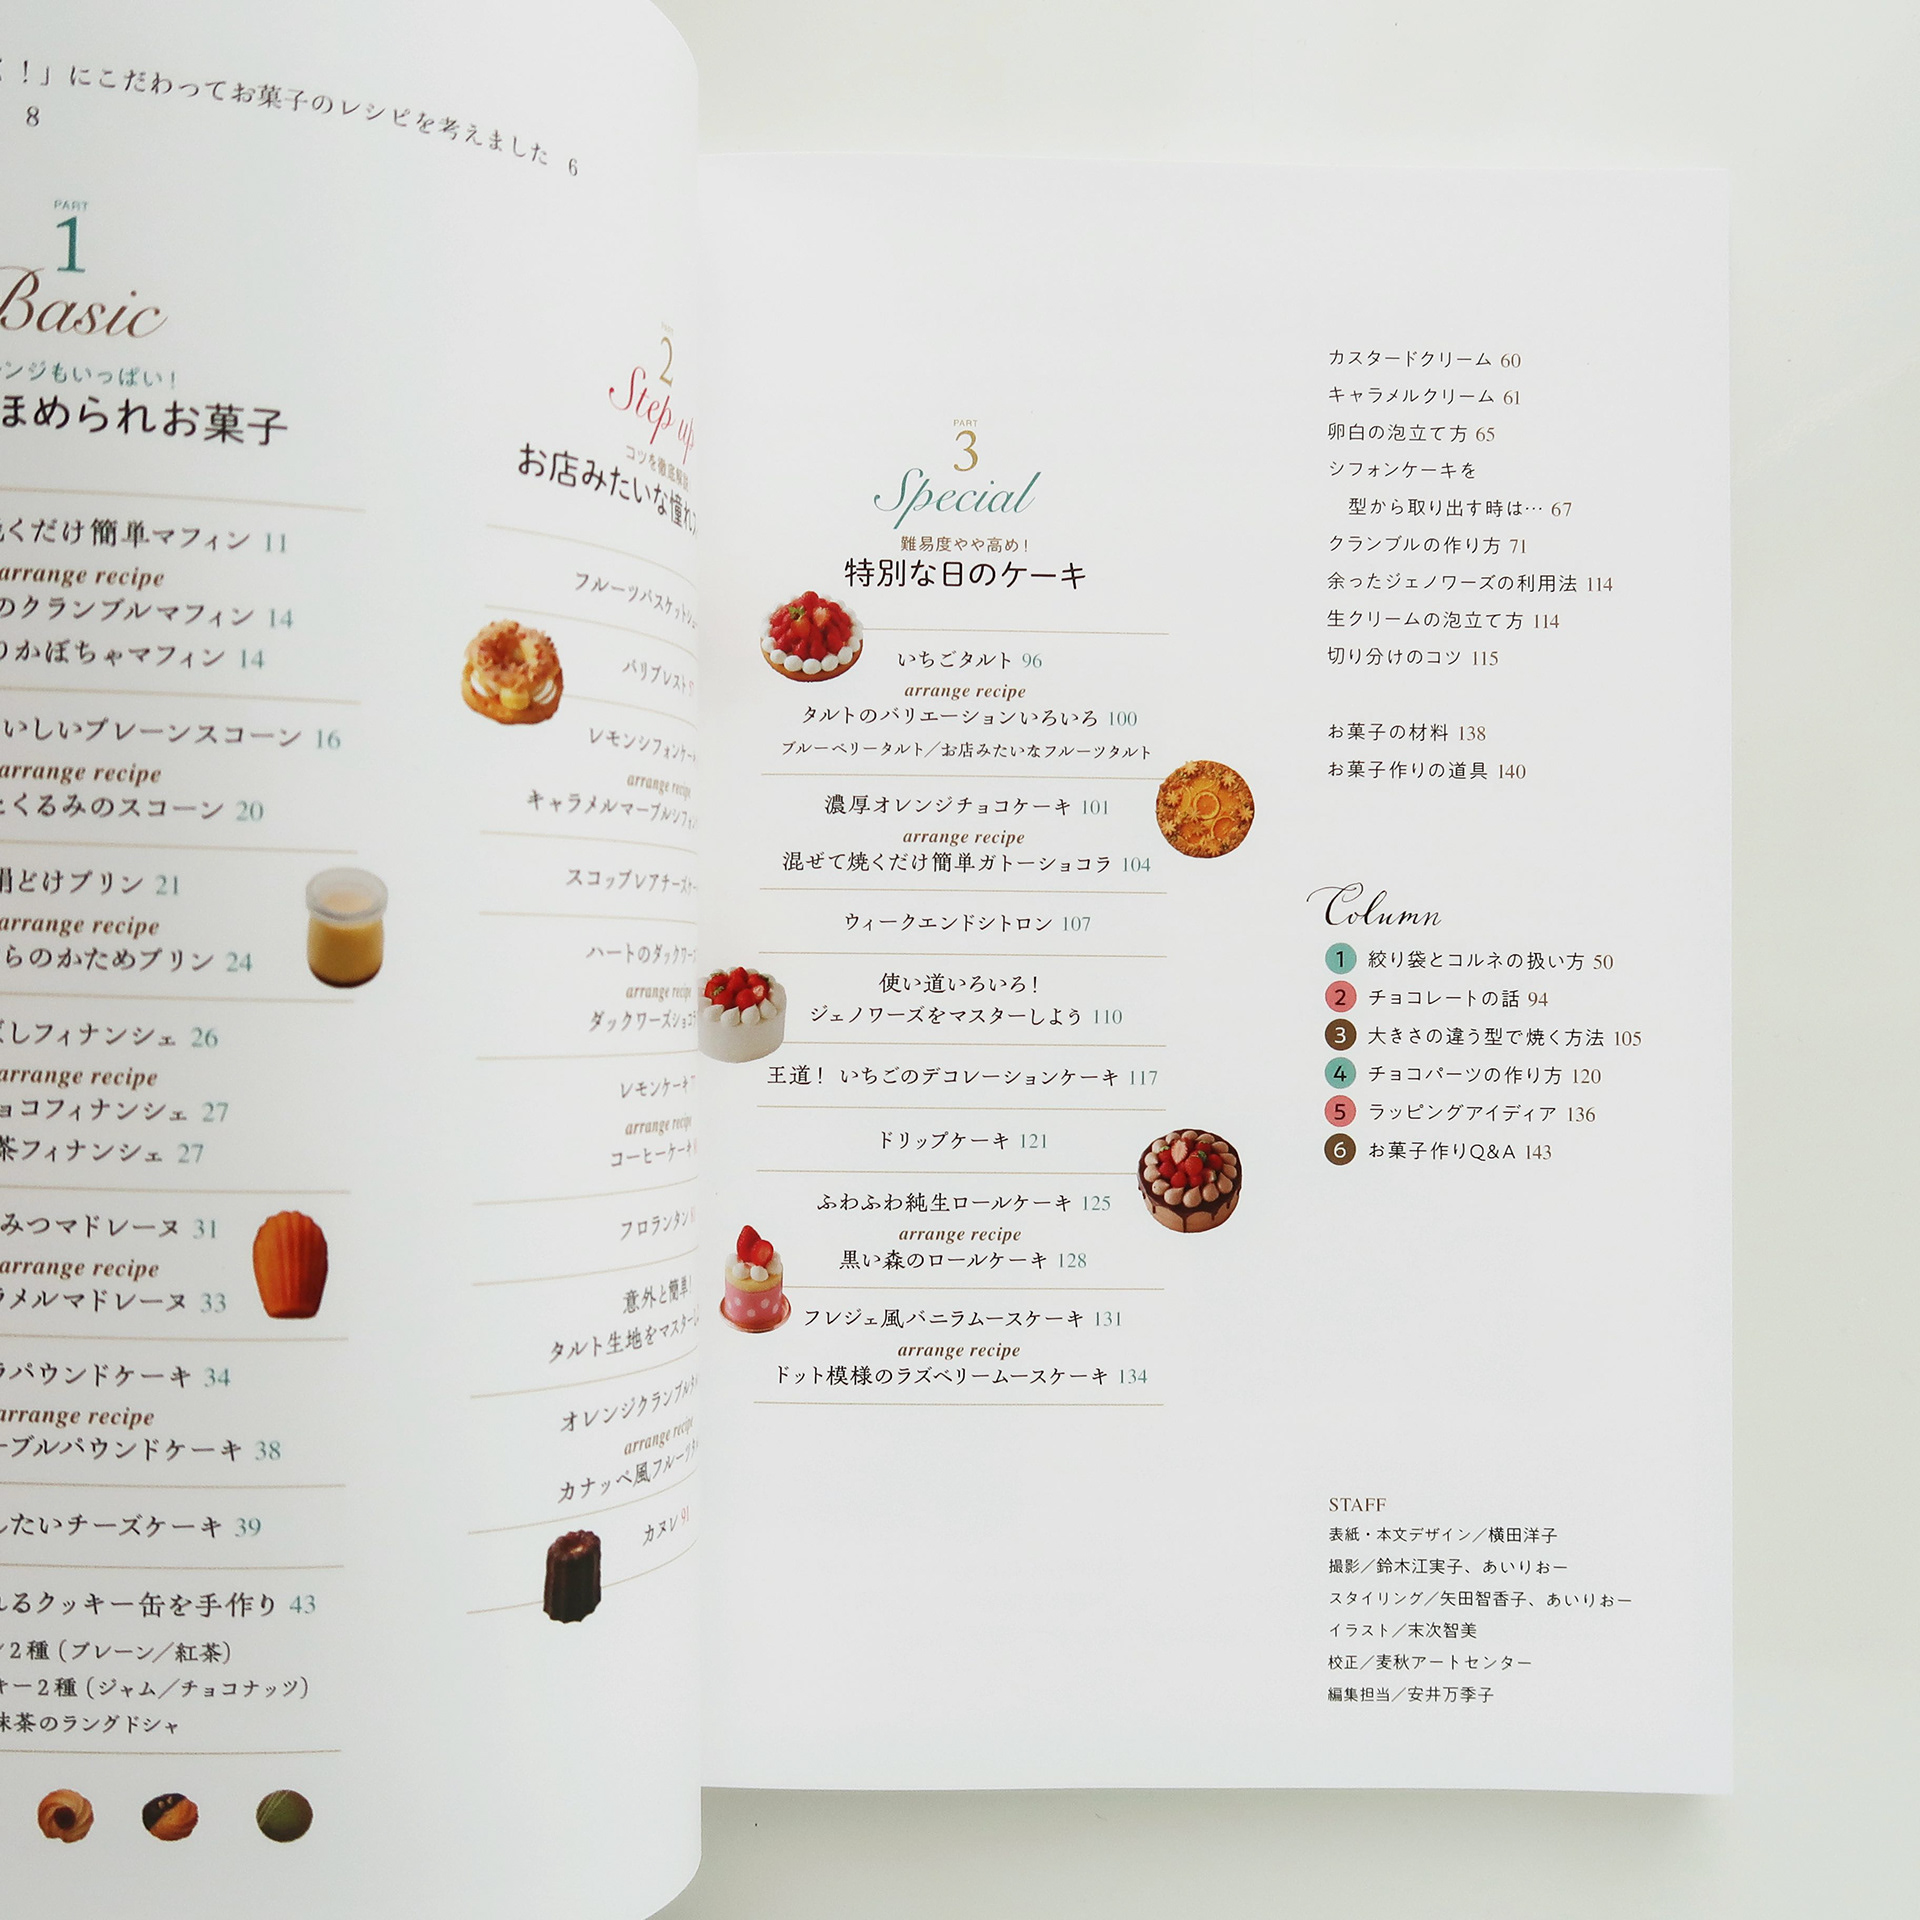 ！」にこだわってお菓子のレシピを考えました 6
8
PART
1
Basic
ンジもいっぱい！
ほめられお菓子
くだけ簡単マフィン 11
arrange recipe
のクランブルマフィン 14
りかぼちゃマフィン 14
いしいプレーンスコーン 16
arrange recipe
くるみのスコーン 20
どけプリン 21
arrange recipe
らのかためプリン 24
しフィナンシェ 26
arrange recipe
ョコフィナンシェ 27
茶フィナンシェ 27
みつマドレーヌ 31
arrange recipe
ラメルマドレーヌ 33
パウンドケーキ 34
arrange recipe
ーブルパウンドケーキ 38
たいチーズケーキ 39
るクッキー缶を手作り 43
2種（プレーン／紅茶）
キー2種（ジャム／チョコナッツ）
抹茶のラングドシャ
PART
2
Step up
コツを徹底解説
お店みたいな憧れ
フルーツバスケット
パリブレスト
レモンシフォンケー
arrange recipe
キャラメルマーブルシフォ
スコップレアチーズケー
ハートのダックワーズ
arrange recipe
ダックワーズショコラ
レモンケーキ
arrange recipe
コーヒーケーキ
フロランタン
意外と簡単！
タルト生地をマスター
オレンジクランブルタ
arrange recipe
カナッペ風フルーツタ
カヌレ 91
PART
3
Special
難易度やや高め！
特別な日のケーキ
いちごタルト 96
arrange recipe
タルトのバリエーションいろいろ 100
ブルーベリータルト／お店みたいなフルーツタルト
濃厚オレンジチョコケーキ 101
arrange recipe
混ぜて焼くだけ簡単ガトーショコラ 104
ウィークエンドシトロン 107
使い道いろいろ！
ジェノワーズをマスターしよう 110
王道！ いちごのデコレーションケーキ 117
ドリップケーキ 121
ふわふわ純生ロールケーキ 125
arrange recipe
黒い森のロールケーキ 128
フレジェ風バニラムースケーキ 131
arrange recipe
ドット模様のラズベリームースケーキ 134
カスタードクリーム 60
キャラメルクリーム 61
卵白の泡立て方 65
シフォンケーキを
型から取り出す時は… 67
クランブルの作り方 71
余ったジェノワーズの利用法 114
生クリームの泡立て方 114
切り分けのコツ 115
お菓子の材料 138
お菓子作りの道具 140
Column
1 絞り袋とコルネの扱い方 50
2 チョコレートの話 94
3 大きさの違う型で焼く方法 105
4 チョコパーツの作り方 120
5 ラッピングアイディア 136
6 お菓子作りQ&A 143
STAFF
表紙・本文デザイン／横田洋子
撮影／鈴木江実子、あいりおー
スタイリング／矢田智香子、あいりおー
イラスト／末次智美
校正／麦秋アートセンター
編集担当／安井万季子